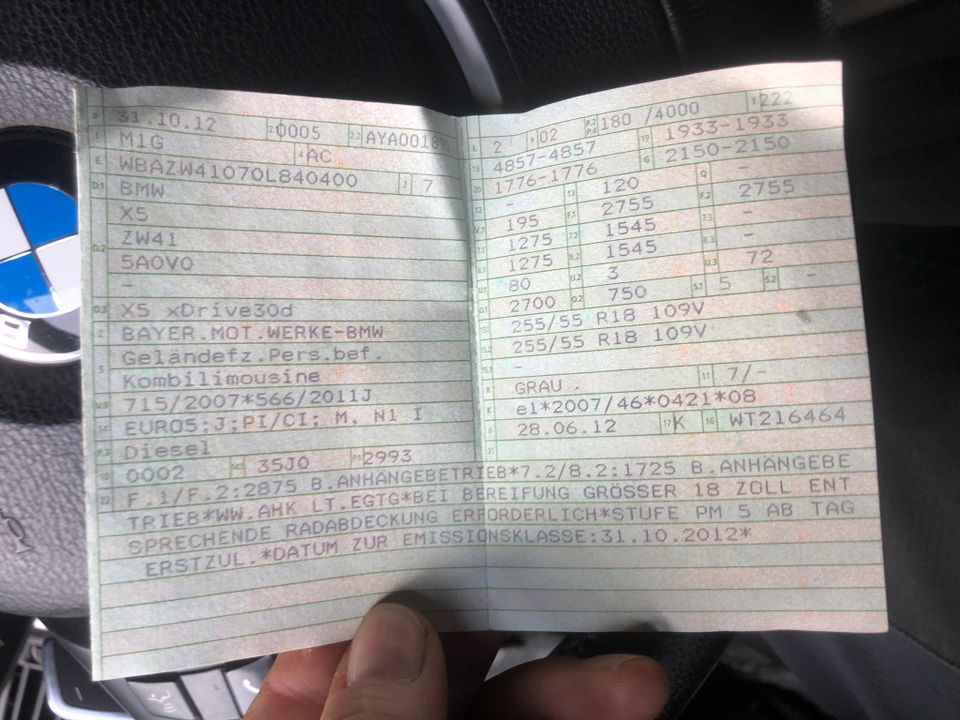 31.10.12 2.1 0005 2.2 AYA00189
J M1G 4 AC
E WBAZW41070L840400 3 7
D.1 BMW
X5
D.2 ZW41
5A0V0
-
D.3 X5 xDrive30d
2 BAYER.MOT.WERKE-BMW
5 Geländefz.Pers.bef.
Kombilimousine
V.9 715/2007*566/2011J
14 EURO5;J;PI/CI; M, N1 I
P.3 Diesel
10 0002 14.1 35J0 P.1 2993
L 2 9 02 P.2 P.4 180 /4000 T 222
18 4857-4857 19 1933-1933
20 1776-1776 G 2150-2150
12 - 13 120 Q -
V.7 195 F.1 2755 F.2 2755
7.1 1275 7.2 1545 7.3 -
8.1 1275 8.2 1545 8.3 -
U.1 80 U.2 3 U.3 72
O.1 2700 O.2 750 S.1 5 S.2 -
15.1 255/55 R18 109V
15.2 255/55 R18 109V
15.3 -
R GRAU . 11 7/-
K e1*2007/46*0421*08
6 28.06.12 17 K 16 WT216464
21
22 F.1/F.2:2875 B.ANHÄNGEBETRIEB*7.2/8.2:1725 B.ANHÄNGEBE
TRIEB*WW.AHK LT.EGTG*BEI BEREIFUNG GRÖSSER 18 ZOLL ENT
SPRECHENDE RADABDECKUNG ERFORDERLICH*STUFE PM 5 AB TAG
ERSTZUL.*DATUM ZUR EMISSIONSKLASSE:31.10.2012*